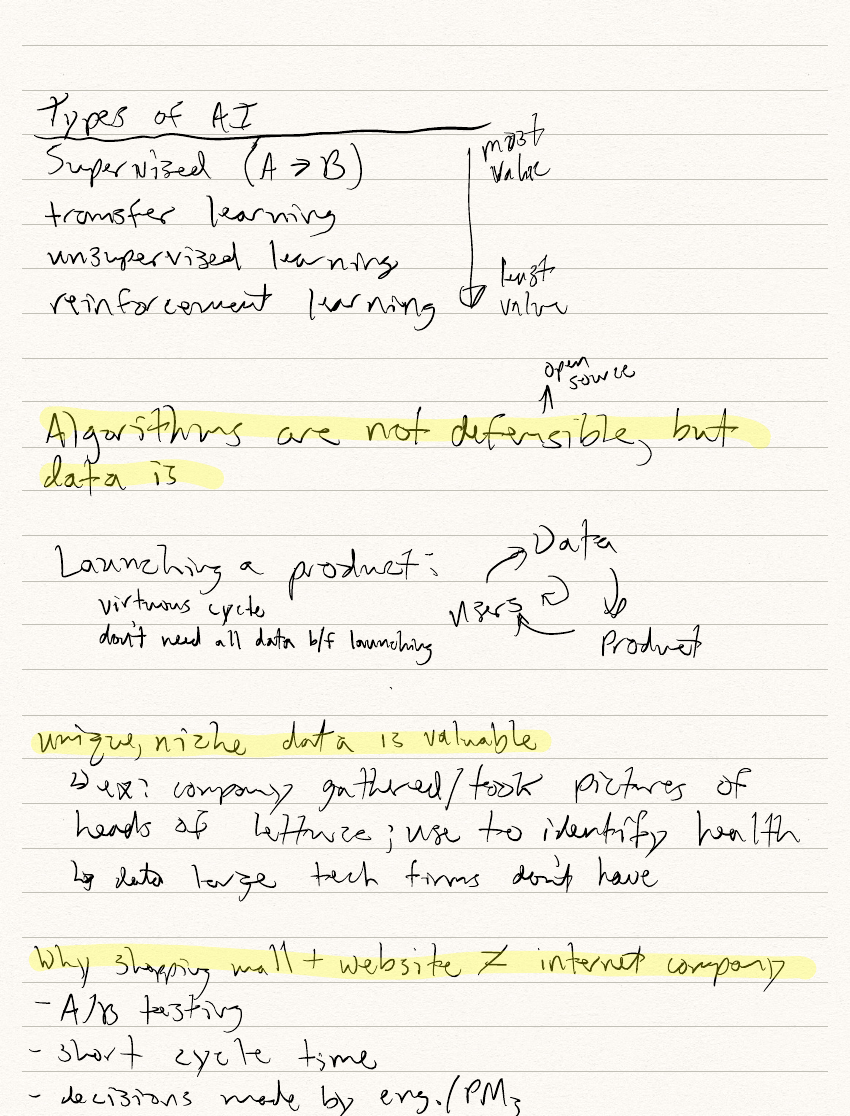 Types of AI
Supervized (A → B)
most
value
transfer learning
unsupervized learning
least
reinforcement learning
value
open
source
↑
Algorithms are not defensible, but
data is
Launching a product:
virtuous cycle
don't need all data b/f launching
Data
Users
Product
unique, niche data is valuable
↳ ex: company gathered/took pictures of
heads of lettuce; use to identify health
↳ data large tech firms don't have
Why shopping mall + website ≠ internet company
- A/B testing
- short cycle time
- decisions made by eng./PMs